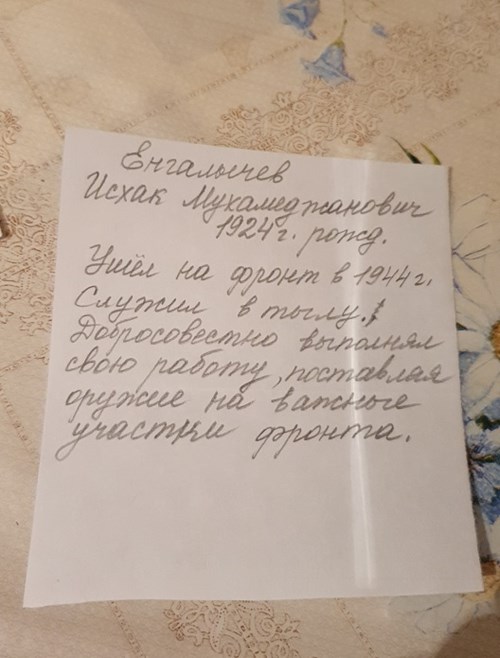 Енгалычев
Исхак Мухамеджанович
1924 г. рожд.
Ушёл на фронт в 1944 г.
Служил в тылу.
Добросовестно выполнял
свою работу, поставляя
оружие на важные
участки фронта.